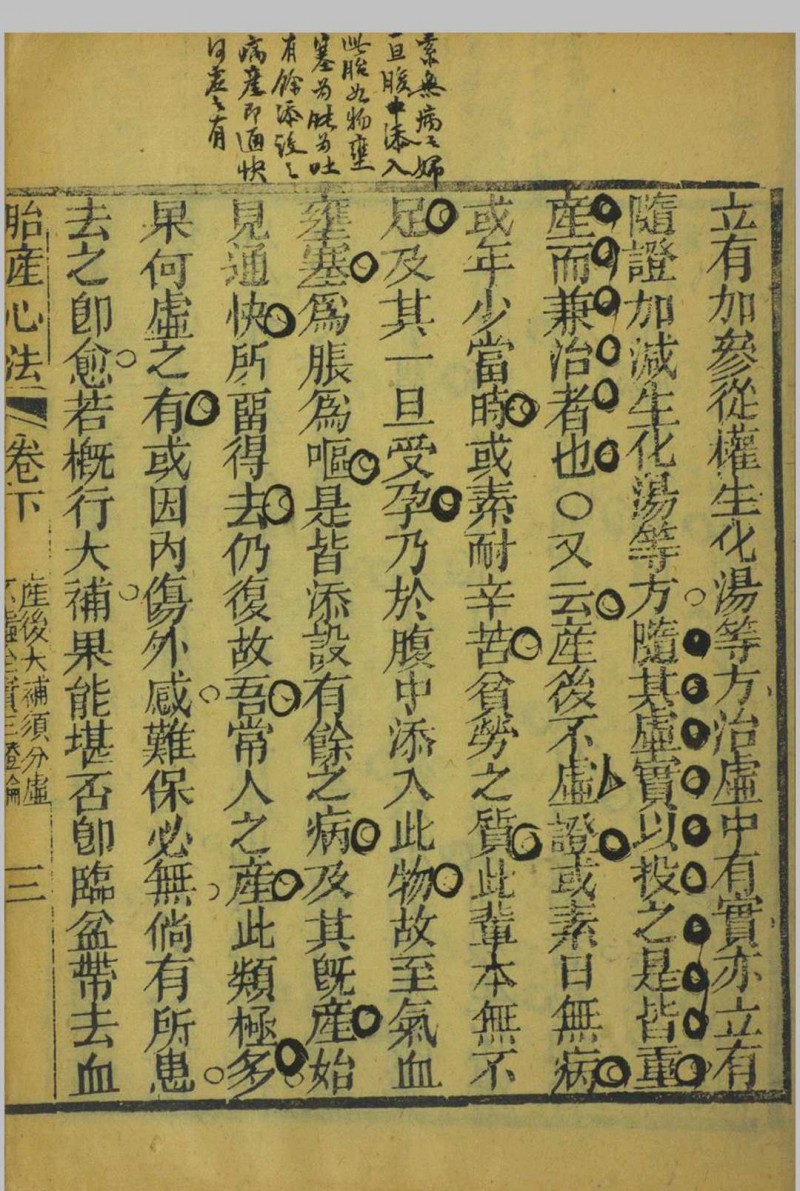 素無病之婦
一旦腹中添入
此胎如物壅
塞為脹為吐
有餘添設之
病產即通快
何虛之有
立有加參從權生化湯等方治虛中有實亦立有
隨證加減生化湯等方隨其虛實以投之是皆重
產而兼治者也○又云產後不虛證或素日無病
或年少當時或素耐辛苦貧勞之質此輩本無不
足及其一旦受孕乃於腹中添入此物故至氣血
壅塞爲脹爲嘔是皆添設有餘之病及其旣產始
見通快所畱得去仍復故吾常人之產此類極多
果何虛之有或因內傷外感難保必無倘有所患
去之卽愈若槪行大補果能堪否卽臨盆帶去血
胎產心法 卷下
產後大補須分虛
不虛全實三證論
三